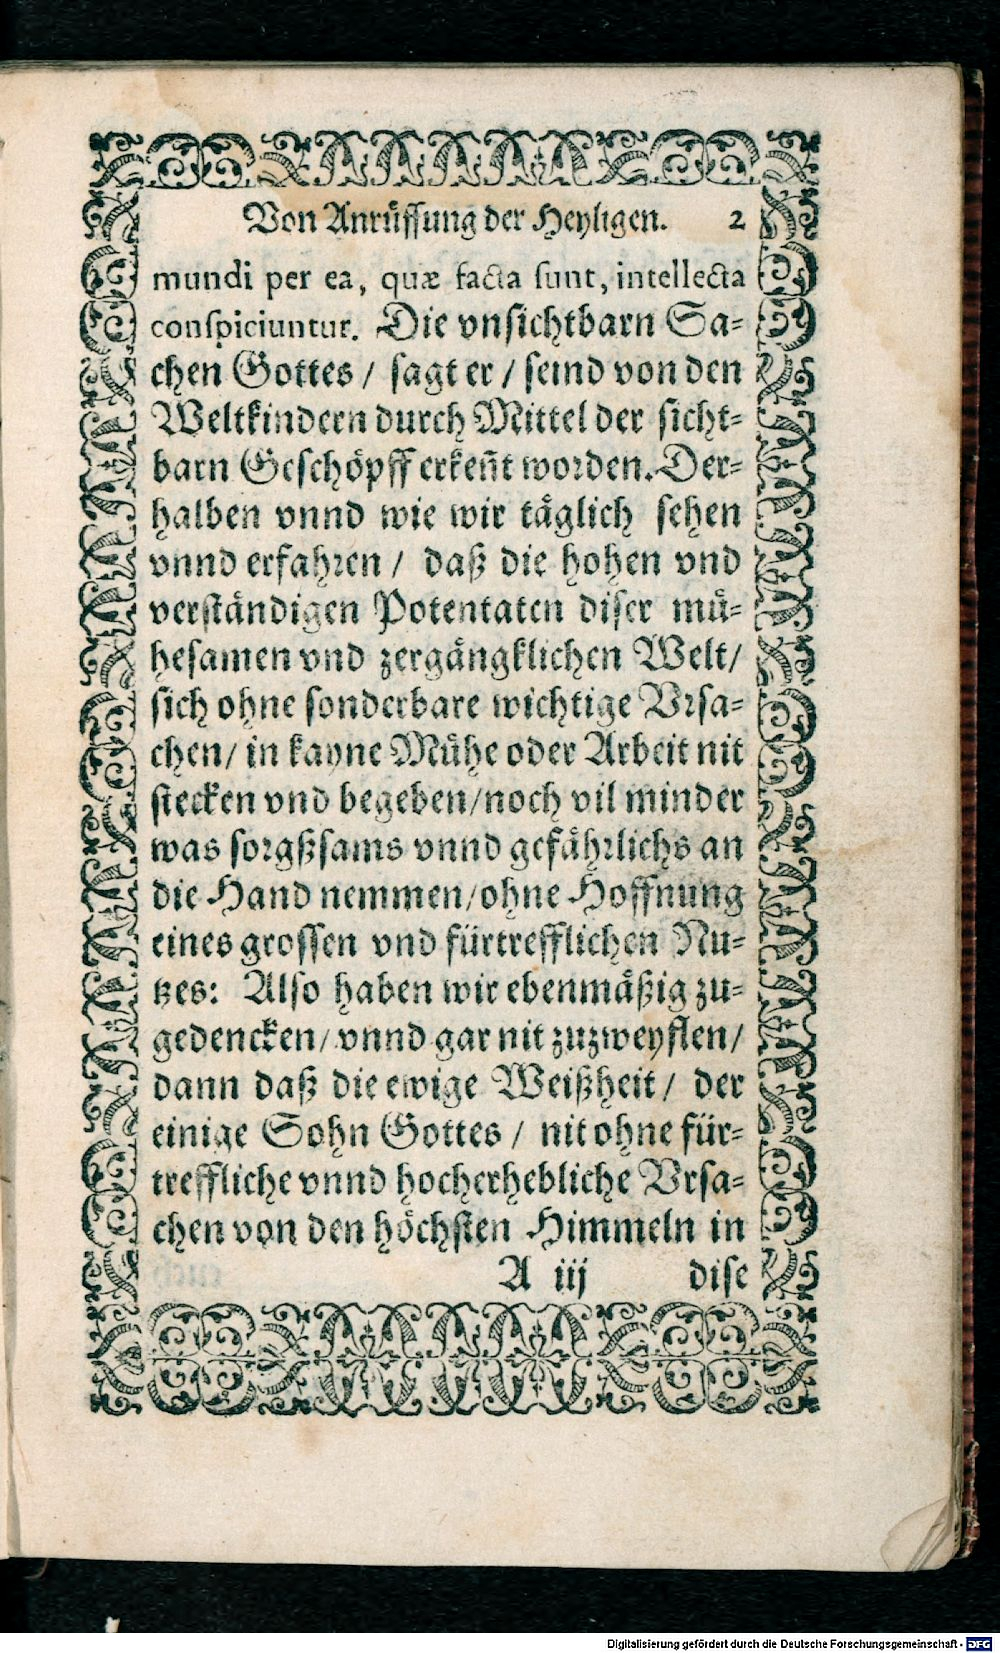 Von Anrüffung der Heyligen. 2
mundi per ea, quæ facta ſunt, intellecta
conſpiciuntur. Die vnſichtbarn Sa⸗
chen Gottes / ſagt er / ſeind von den
Weltkindern durch Mittel der ſicht⸗
barn Geſchöpff erkeñt worden. Der⸗
halben vnnd wie wir täglich ſehen
vnnd erfahren / daß die hohen vnd
verſtändigen Potentaten diſer mü⸗
heſamen vnd zergängklichen Welt /
ſich ohne ſonderbare wichtige Vrſa⸗
chen / in kayne Mühe oder Arbeit nit
ſtecken vnd begeben / noch vil minder
was ſorgßſams vnnd gefährlichs an
die Hand nemmen / ohne Hoffnung
eines groſſen vnd fürtrefflichen Nu⸗
tzes: Alſo haben wir ebenmäßig zu⸗
gedencken / vnnd gar nit zuzweyflen /
dann daß die ewige Weißheit / der
einige Sohn Gottes / nit ohne für⸗
treffliche vnnd hocherhebliche Vrſa⸗
chen von den höchſten Himmeln in
A iij diſe
Digitalisierung gefördert durch die Deutsche Forschungsgemeinschaft - DFG